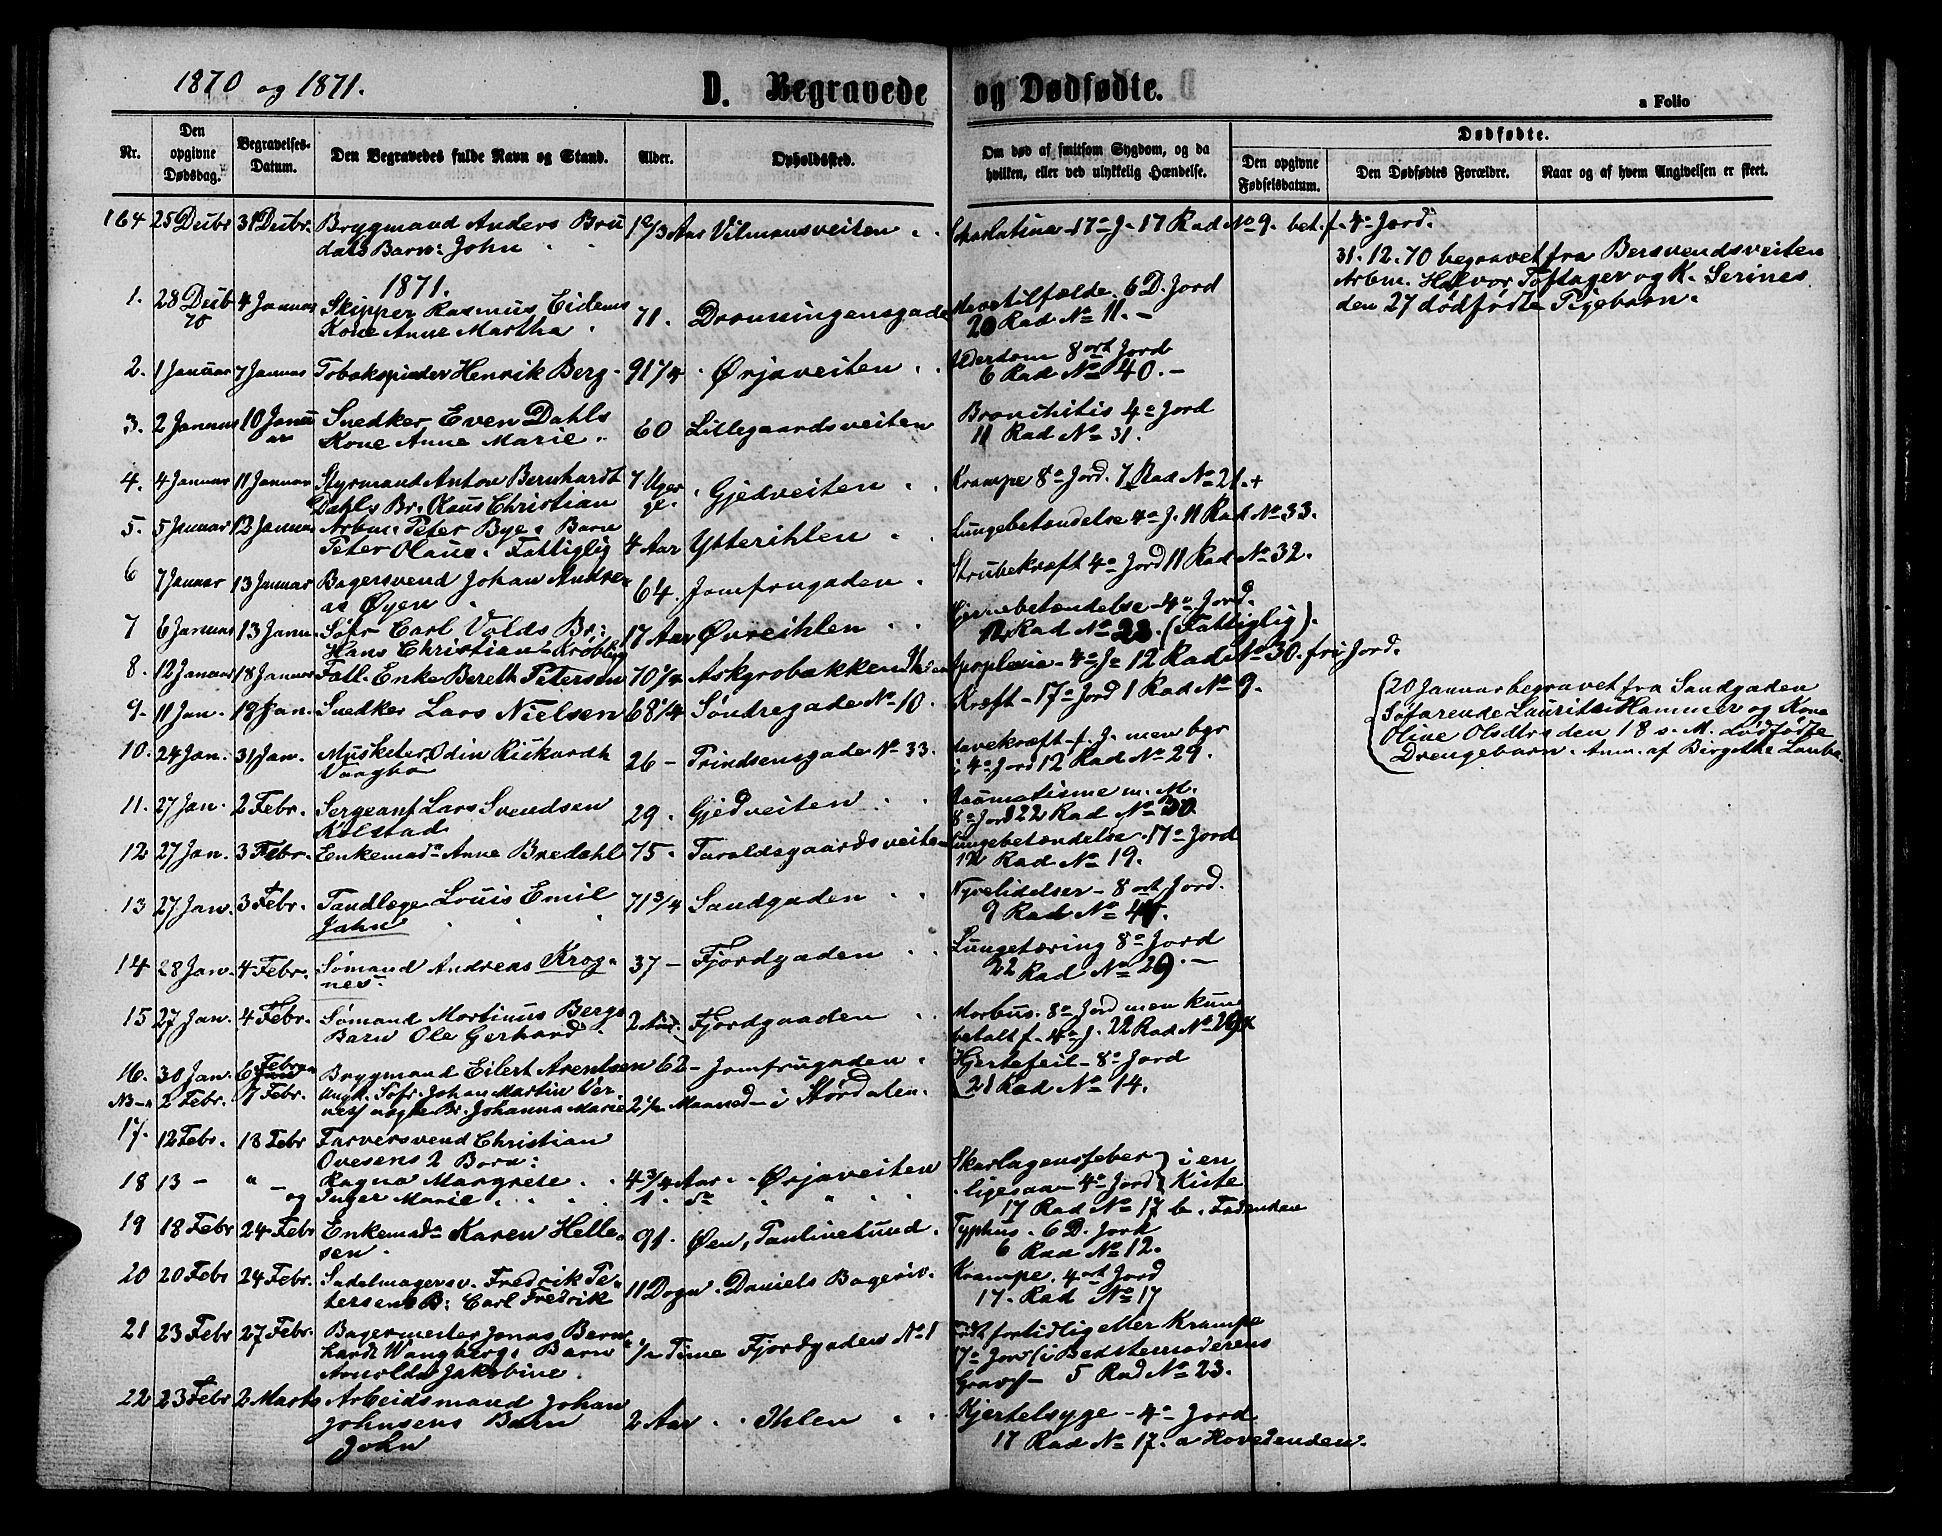 1870 og 1871.
D. Begravede og Dødfødte.
a Folio
Nr.
Den opgivne Dødsdag.
Begravelses-Datum.
Den Begravedes fulde Navn og Stand.
Alder.
Opholdssted.
Om død af smitsom Sygdom, og da hvilken, eller ved ulykkelig Hændelse.
Dødfødte.
Den opgivne Fødselsdatum.
Den Dødfødtes Forældre.
Naar og af hvem Angivelsen er skeet.
164 25 Deibr 31 Deibr. Brygmand Anders Bru 1 2/3 Aar Vilmansveiten Skarlatina - 17de J. 17 Rad No 9. bet. f. 4de Jord.
dals Barn: John
31. 12. 70 begravet fra Bersvendsveiten
Arbm. Halvor Toftager og K. Serines
den 27 dødfødte Pigebarn.
1871.
1. 28 Deibr 4 Januar Skipper Rasmus Eidems 71. Dronningensgade 6 D. Jord
70 Kone Anne Martha 20 Rad No 11. -
2. 1 Januar 7 Januar Tobakspinder Henrik Berg - 91 1/4 Ørjaveiten Alderdom 8de Jord
6 Rad No 40. -
3. 2 Januar 10 Janu Snedker Even Dahls 60 Lillegaardsveiten Bronchitis 4de Jord
ar Kone Anne Marie. 11 Rad No 31.
4. 4 Januar 11 Januar Styrmand Anton Bernhardt 7 Uger Gjedveiten Krampe 8de Jord. 7 Rad No 21. +
Dahls Br. Olaus Christian
5. 5 Januar 12 Januar Arbm. Peter Byes Barn 4 Aar Ytterihlen Lungebetændelse 4de J. 11 Rad No 33.
Peter Olaus. Fattiglig
6 7 Januar 13 Januar Bagersvend Johan Andre- 64. Jomfrugaden Strubekræft 4de Jord 11 Rad No 32.
as Øyen
7 6 Januar 13 Janu. Søfr Carl Volds Br: 17 Aar Øvreihlen Hjernebetændelse - 4de Jord.
Hans Christian - Krøbling 12 Rad No 28. (Fattiglig).
8. 12 Januar 18 Januar Fatl. Enke Bereth Petersen 70 1/4 Askgrobakken Ihlen Apoplexia - 4de J. 12 Rad No 30. fri Jord.
9. 11 Jan. 18 Jan. Snedker Lars Nielsen 68 1/4 Søndregade No 10. Kræft - 17de Jord 1 Rad No 9.
(20 Januar begravet fra Sandgaden
Søfarende Laurits Hammer og Kone
Oline Olsdtrs den 18 s. M. dødfødte
Drengebarn. Anm. af Birgitte
10. 24 Jan. 31 Jan. Musketer Odin Rickardt 26 - Prindsensgade No 33. Mavekræft - f. J. men bgr
Vaagbø i 4de Jord 12 Rad No 29.
11. 27 Jan. 2 Febr. Sergeant Lars Svendsen 29. Gjedveiten m. M.
Kolstad 8de Jord 22 Rad No 30
12 27 Jan. 3 Febr. Enkemade Anne Bredahl 75. Taraldsgaardsveiten Lungebetændelse. 17de Jord
12 Rad No 19.
13 27 Jan. 3 Febr. Tandlæge Louis Emil 71 3/4 Sandgaden Nyrelidelser - 8de Jord.
Jahn 9 Rad No 45.
14 28 Jan. 4 Febr. Sømand Andreas Krog- 37 - Fjordgaden Lungetæring 8de Jord
nes. 22 Rad No 29. -
15 27 Jan. 4 Febr. Sømand Mortinus Bergs 2 Fjordgaden Morbus. 8de Jord men kun
Barn Ole Gerhard betalt f. 4de J. 22 Rad No 29
16. 30 Jan. 6 Febru Brygmand Eilert Arentsen 62 - Jomfrugaden. Hjertefeil - 8de Jord
21 Rad No 14.
2 Febr. 7 Febr. Ungk. Søfr. Johan Martin Ver-
Br. Johanna Marie 2 1/2 Maaned - i Størdalen.
17. 12 Febr. 18 Febr Farversvend Christian
Ovesens 2 Børn:
18 13 - " - Ragna Margrete 4 3/4 Aar Ørjaveiten Skarlagensfeber } i en
og Inger Marie 1. do ligesaa - 4de Jord } Kiste
17 Rad No 17 b. Fodenden
19 18 Febr 24 Febr Enkemade Karen Helle- 91. Øen, Paulinelund. Typhus. 6 D. Jord
sen. 6 Rad No 12.
20 20 Febr 24 Febr. Sadelmagersv. Fredrik Pe- 11 Døgn Daniels Bageriv. Krampe. 4de Jord
tersens B: Carl Fredrik 17. Rad No 17
21 23 Febr 27 Febr. Bagermester Jonas Bern- 1/2 Time Fjordgaden No 1 Født fortidlig eller Krampe
hardt Wangbergs Barn 17de Jord (i Bedstemoderens
Arnolda Jakobine. Grav) - 5 Rad No 23.
22 23 Febr 2 Marts Arbeidsmand Johan 2 Aar Ihlen Kjertelsyge - 4de Jord
Johnsens Barn 17 Rad No 17. a Hovedenden.
John